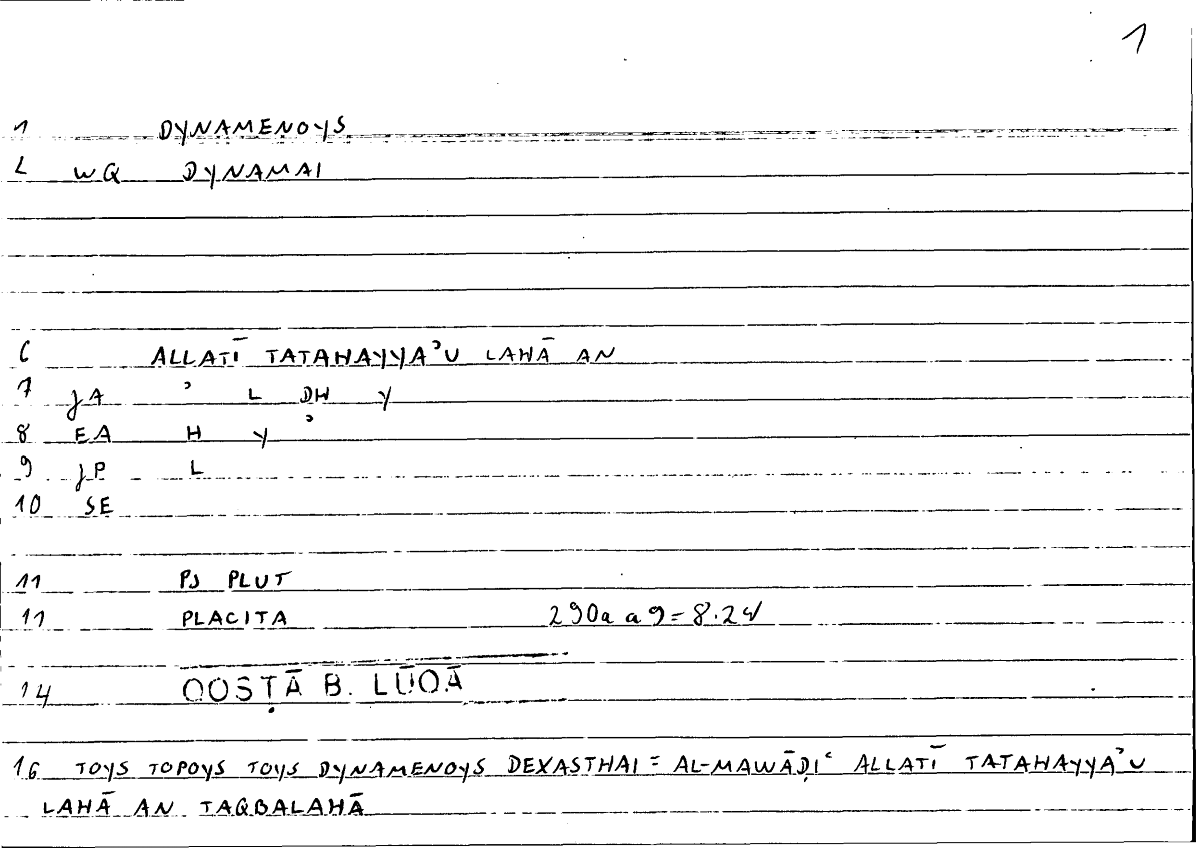 1
1 DYNAMENOYS
2 WQ DYNAMAI
6 ALLATĪ TATAHAYYAʾU LAHĀ AN
7 JA ʾ L DH Y
8 EA H Y ʾ
9 JP L
10 SE
11 PS PLUT
11 PLACITA 290a a9=8.24
14 QOSṬĀ B. LŪQĀ
16 TOYS TOPOYS TOYS DYNAMENOYS DEXASTHAI = AL-MAWĀḌIʿ ALLATĪ TATAHAYYAʾU
LAHĀ AN TAQBALAHĀ